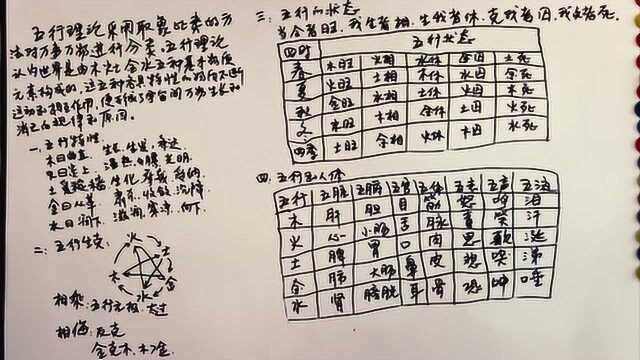 五行理论采用取象比类的方
法对万事万物进行分类。五行理论
认为世界是由木火土金水五种基本物质
元素构成的，这五种各具特性的物质不断
运动和相互作用，
消亡的规律和原因。
一、五行特性
木曰曲直 生长 生发
火曰炎上 温热 光明
土爰稼穑 生化 承载
金曰从革 肃杀 收敛
水曰润下 滋润 寒凉 向下
二、五行生克
火
木 土
水 金
相乘：五行无相 太过
相侮：反克
金克木 木
三、五行的状态
当令者旺，我生者相，生我者休，克我者囚，我克者死。
四时 五行状态
春 木旺 火相 水休 金囚 土死
夏 火旺 土相 木休 水囚 金死
秋 金旺 水相 土休 火囚 木死
冬 水旺 木相 金休 土囚 火死
四季 土旺 金相 火休 木囚 水死
四、五行与人体
五行 五脏 五腑 五官 五体 五志 五声 五液
木 肝 胆 目 筋 怒 呼 泪
火 心 小肠 舌 脉 喜 笑 汗
土 脾 胃 口 肉 思 歌 涎
金 肺 大肠 鼻 皮 悲 哭 涕
水 肾 膀胱 耳 骨 恐 呻 唾